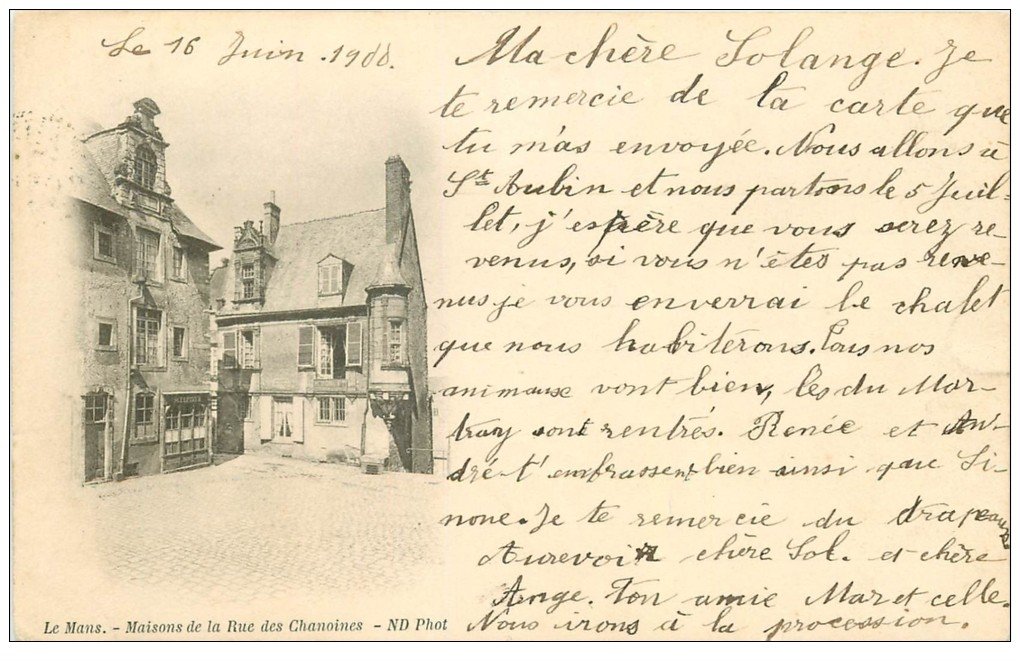 Le 16 Juin. 1900.
Ma chère Solange. Je
te remercie de la carte que
tu m'as envoyée. Nous allons à
St Aubin et nous partons le 5 Juil-
let, j'espère que vous serez re
venus, si vous n'êtes pas reve-
nus je vous enverrai le chalet
que nous habiterons. Tous nos
animaux vont bien, les du Mar-
tray sont rentrés. Renée et An-
dré t'embrassent bien ainsi que Si-
mone. Je te remercie du drapeau
Aurevoir chère Sol. et chère
Ange. Ton amie Marcelle.
Nous irons à la procession.
Le Mans. - Maisons de la Rue des Chanoines - ND Phot